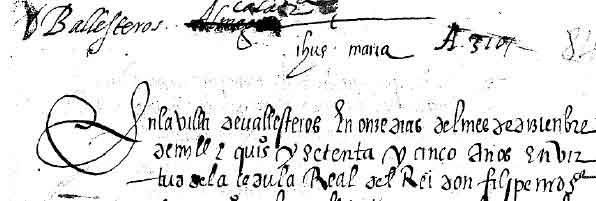 Ballesteros
ihus maria
En la villa de vallesteros En onze dias del mes de dizienbre
de mill e quis y setenta y cinco años En vir
tud de la cedula Real del Rei don filipe nros